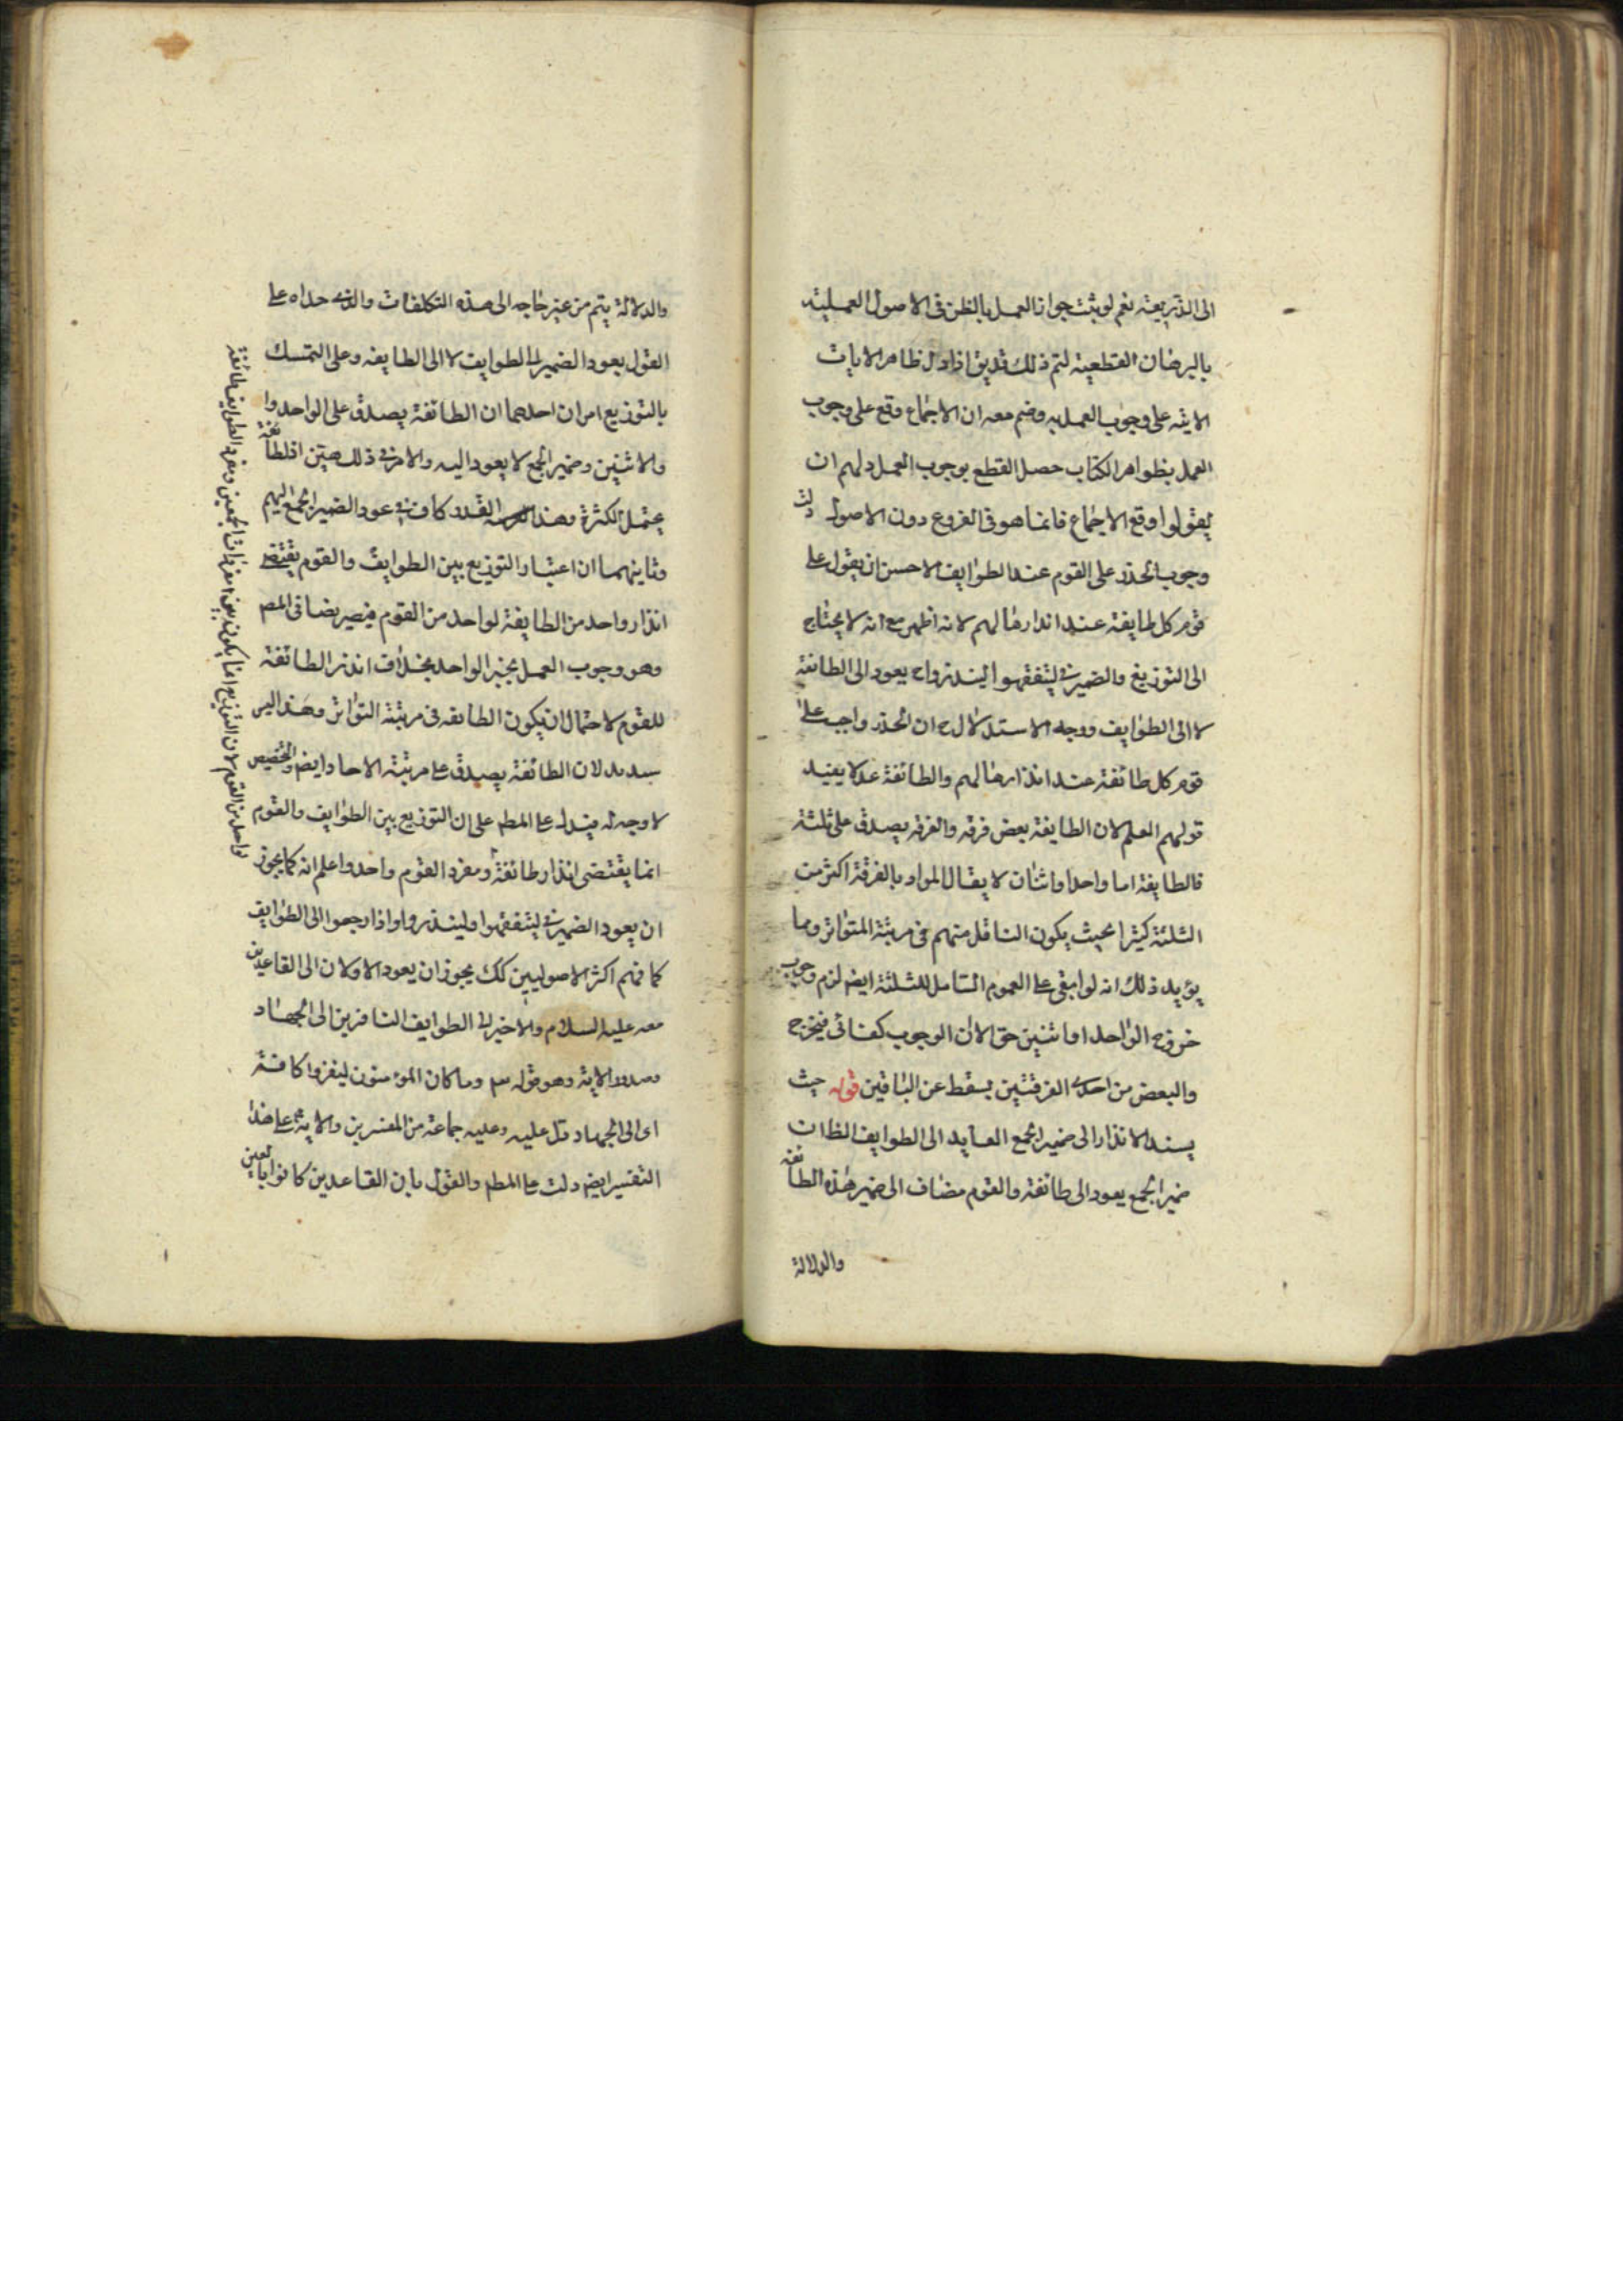 الى الذريعة نعم لو ثبت جواز العمل بالظن فى الاصول العملية
بالبرهان القطعية لتم ذلك اذا دل ظاهر الايات
الاية على وجوب العمل به وضم معه ان الاجماع وقع على وجوب
العمل بظواهر الكتاب حصل القطع بوجوب العمل ولهم ان
يقولوا وقع الاجماع فانما هو فى الفروع دون الاصول
وجوب الحذر على القوم عند الطوايف الاحسن ان يقول على
قوم كل طايفة عند انذارها لهم لانه اظهر مع انه لا يحتاج
الى التوزيع والضمير فى ليتفقهوا لينذروا ح يعود الى الطائفة
لا الى الطوايف ووجه الاستدلال ح ان الحذر واجب على
قوم كل طائفة عند انذارها لهم والطائفة عد لا يفيد
قولهم العلم لان الطايفة بعض فرقه والفرقه يصدق على ثلثة
فالطايفة اما واحد او اثنان لا يقال المراد بالفرقة اكثر من
الثلثة كثيرا بحيث يكون الناقل منهم فى مرتبة المتواتر وما
يؤيد ذلك انه لو ابقى على العموم الشامل للثلثة ايضا لزم وجوب
خروج الواحد او اثنين حق الان الوجوب كفائى فيخرج
والبعض من احدى الفرقتين يسقط عن الباقين قوله حيث
يسند الانذار الى ضمير الجمع العايد الى الطوايف الظ ان
ضمير الجمع يعود الى طائفة والقوم مضاف الى ضمير هذه الطائفة
والدلالة
والدلالة يتم من غير حاجه الى هذه التكلفات والذى حداه على
القول بعود الضمير الى الطوايف لا الى الطايفه وعلى التمسك
بالتوزيع امران احدهما ان الطائفة يصدق على الواحد
والاثنين وضمير الجمع لا يعود اليه والامر فى ذلك هين اذ لطائفة
يحتمل الكثرة وهذا القدر كاف فى عود الضمير الجمع اليهم
وثانيهما ان اعتبار التوزيع بين الطوايف والقوم يقتضى
انذار واحد من الطايفة لواحد من القوم فيصير نصا فى المط
وهو وجوب العمل بخبر الواحد بخلاف انذر الطائفة
للقوم لاحتمال ان يكون الطائفه فى مرتبة التواتر وهذا ليس
سديد لان الطائفة يصدق على مرتبة الاحاد ايضا والتخصيص
لا وجه له فيدل على المط على ان التوزيع بين الطوايف والقوم
انما يقتضى انذار طائفة ومفرد القوم واحد واعلم انه كما يجوز
ان يعود الضمير فى ليتفقهوا ولينذروا واذا رجعوا الى الطوايف
كما فهم اكثر الاصوليين كك يجوز ان يعود الاولان الى القاعدين
معه عليه السلام والاخير الى الطوايف النافرين الى الجهاد
وصدر الاية وهو قوله تع وما كان المؤمنون لينفروا كافة
اى الى الجهاد دل عليه وعليه جماعة من المفسرين والاية على هذا
التفسير ايضا دلت على المط والقول بان القاعدين كانوا بالغين
لان التوزيع انما يكون بين مفردات الجمعين ومفرد الطوايف طائفة
واحد من القوم